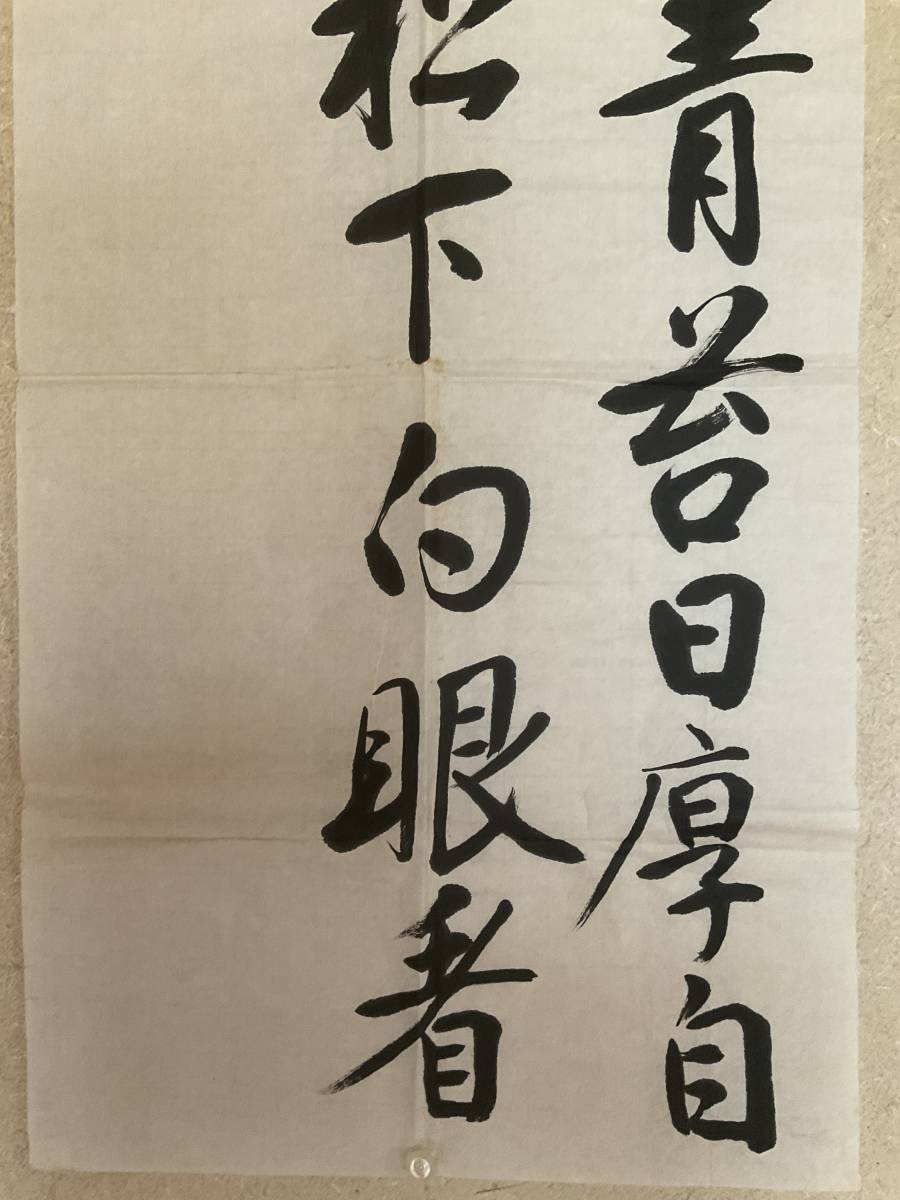 青苔日厚自
松下白眼看